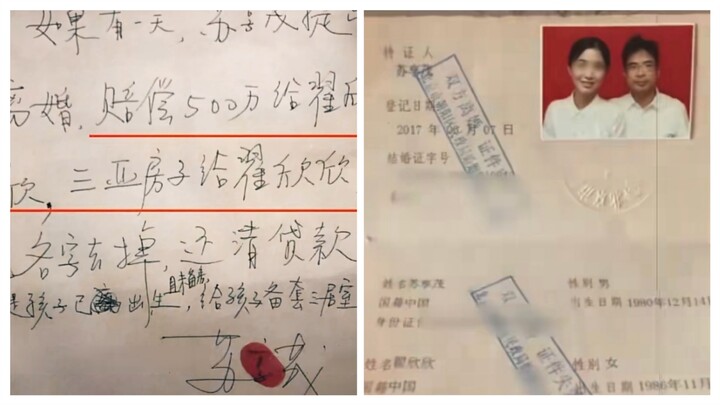 如果有一天，苏享茂提
离婚，赔偿500万给翟欣
欣，三亚房子给翟欣欣
名字去掉，还清贷款
是孩子已出生，且未备房，给孩子备套三居室
苏享茂
持证人
苏享茂
登记日期
2017年 月07日
结婚证字号
双方离婚 证件失
姓名苏享茂 性别男
国籍中国 出生日期1980年12月14
身份证
双
证件失
姓名翟欣欣 性别女
国籍中国 出生日期1986年11月